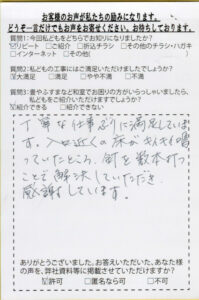 お客様のお声が私たちの励みになります。
どうぞ一言だけでもお声をお寄せください。お待ちしております。
質問1:今回私どもをどちらでお知りになりましたか?
☑リピート □ご紹介 □折込チラシ □その他のチラシ・ハガキ
□インターネット □その他( )
質問2:私どもの工事にはご満足いただけましたでしょうか?
☑大満足 □満足 □やや不満 □不満
質問3:畳やふすまなど和室でお困りの方がいらっしゃいましたら、
私どもをご紹介いただけますでしょうか?
☑紹介できる □紹介できない
丁寧な仕事ぶりに満足していま
す。入口近くの床がキイキイ鳴
っていたところ、釘を数本打つ
ことで解決していただき
感謝しています。
ありがとうございました。お答えいただいた、あなた様
の声を、弊社資料等に掲載させていただけますか?
☑許可 □匿名なら可 □不可